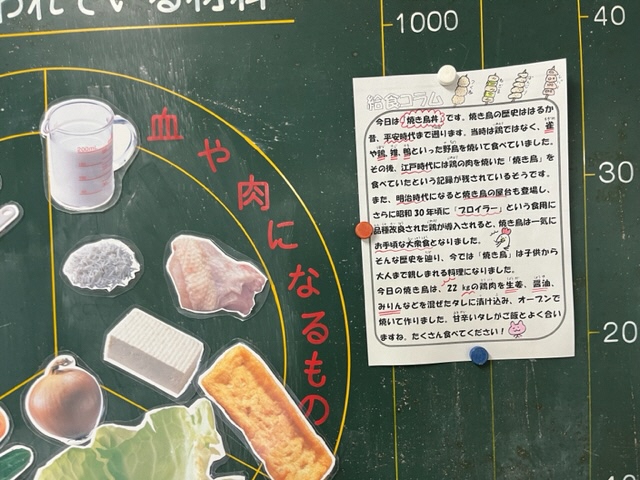 われている材料
1000
40
30
20
血や肉になるもの
給食コラム
今日は焼き鳥丼です。焼き鳥の歴史ははるか
昔、平安時代まで遡ります。当時は鶏ではなく、雀
や鶉、雉、鴨といった野鳥を焼いて食べていました。
その後、江戸時代には鶏の肉を焼いた「焼き鳥」を
食べていたという記録が残されているそうです。
また、明治時代になると焼き鳥の屋台も登場し、
さらに昭和30年頃に「ブロイラー」という食用に
品種改良された鶏が導入されると、焼き鳥は一気に
お手頃な大衆食となりました。
そんな歴史を辿り、今では「焼き鳥」は子供から
大人まで親しまれる料理になりました。
今日の焼き鳥は、22kgの鶏肉を生姜、醤油、
みりんなどを混ぜたタレに漬け込み、オーブンで
焼いて作りました。甘辛いタレがご飯とよく合い
ますね。たくさん食べてください!